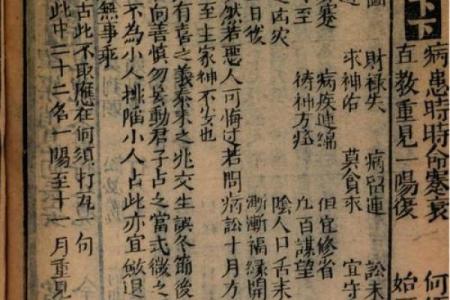 下下
病患時時命蹇衰 何
直教重見一陽復 始
圖 財祿失 病留連 訟未
求神佑 莫貪求 宜守
蹇 病疾連綿 但宜修省
待神方痊 凡百謀望
陰人口舌未
日後 漸漸福緣開
然若惡人可悔过若問病訟十月方
至主家神不安也
有喜之義泰未之兆交生誤冬節後
向善慎勿妄動君子占之當式微之
不為小人排陷小人占此亦宜斂退
無事乘
占此不取應在何須打瓦一句
此中二十二名一陽至十一月重見